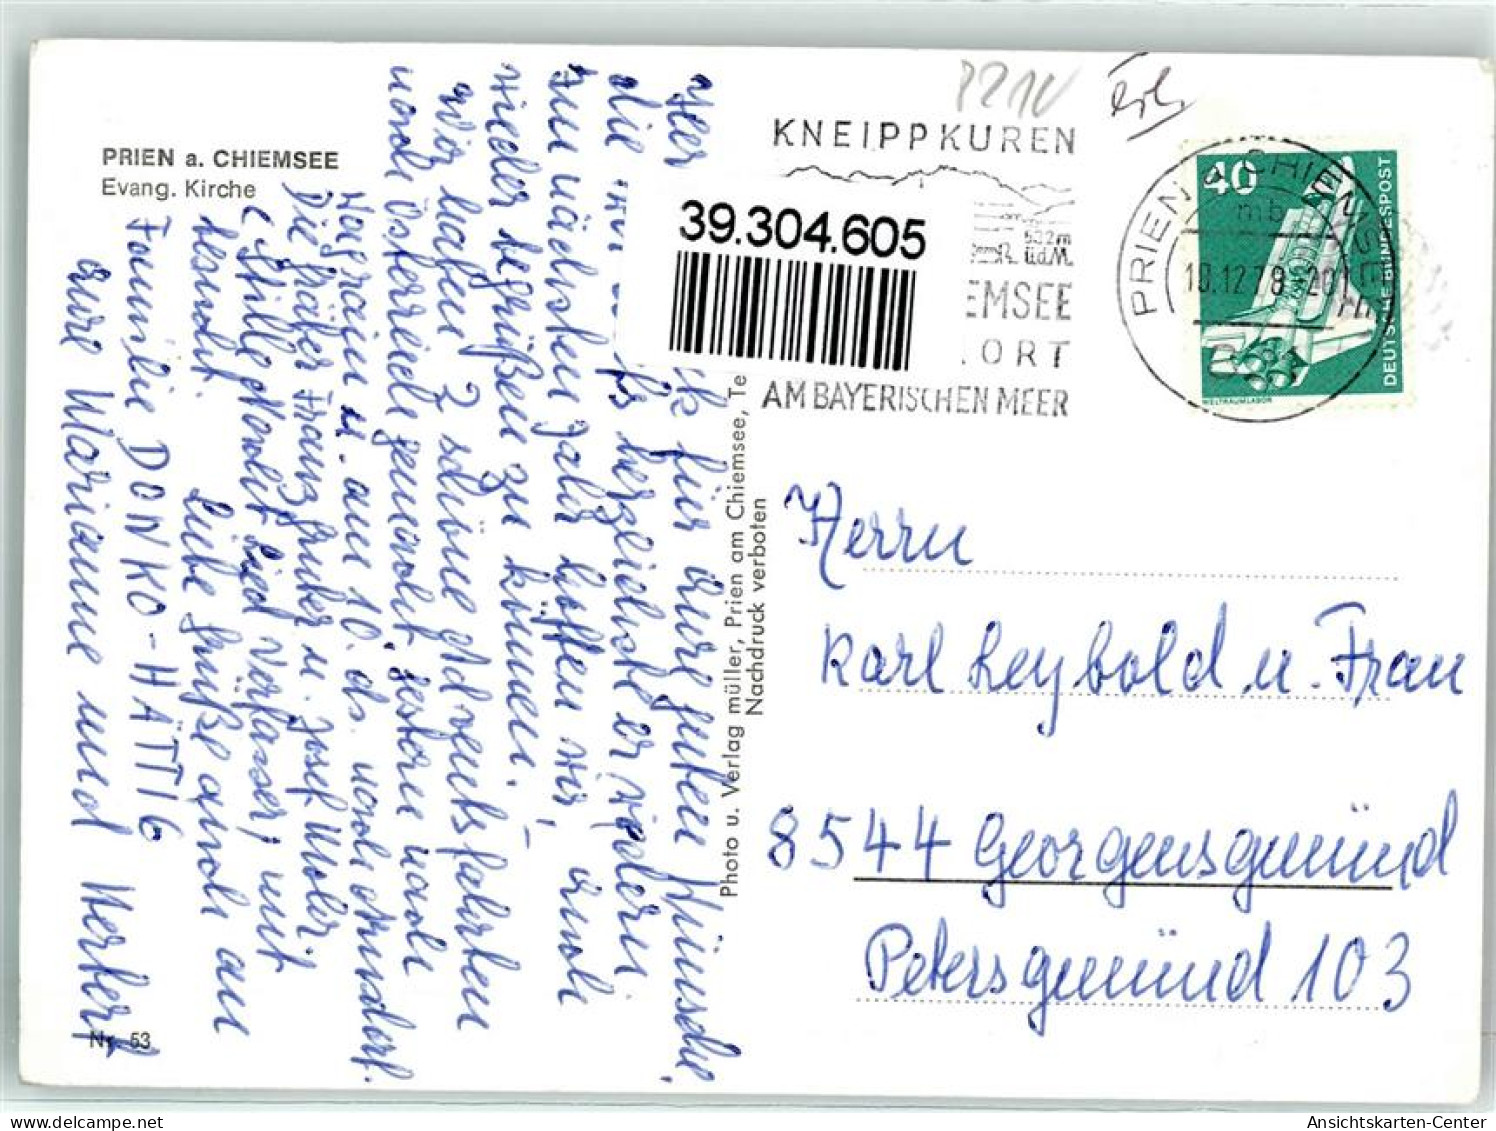 PRIEN a. CHIEMSEE
Evang. Kirche
Nr. 53
Photo u. Verlag müller, Prien am Chiemsee, Te
Nachdruck verboten
39.304.605
KNEIPPKUREN
532m
ü.d.M.
EMSEE
ORT
AM BAYERISCHEN MEER
PRIEN A CHIEMSEE
mb
18.12.78-20
40
DEUTSCHE BUNDESPOST
WELTRAUMLABOR
Herrn
Karl Leybold u. Frau
8544 Georgensgmünd
Petersgmünd 103
für Eure guten Wünsche,
die wir herzlichst erwidern.
Im nächsten Jahr hoffen wir, Euch
wieder begrüßen zu können.
Wir haben 2 schöne Adventsfahrten
nach Österreich gemacht, gestern nach
Wagrain u. am 10. ds. nach Arnsdorf.
Die Gräber Franz Gruber u. Josef Mohr
(Stille Nacht Lied Verfasser) mit
besucht.
Liebe Grüße auch an
Familie DONKO-HÄTTIG
Eure Marianne und Herbert
Ansichtskarten-Center